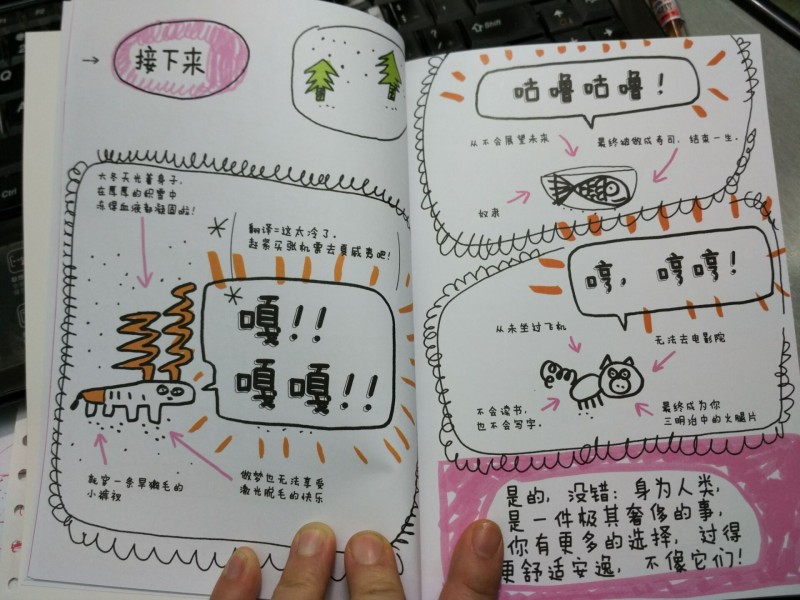 接下来
大冬天光着身子,
在厚厚的积雪中
冻得血液都凝固啦!
翻译=这太冷了,
赶紧买张机票去夏威夷吧!
嘎!!
嘎嘎!!
就穿一条早嫩毛的
小裤衩
做梦也无法享受
激光脱毛的快乐
咕噜咕噜!
从不会展望未来
最终被做成寿司,结束一生。
奴隶
哼,哼哼!
从未坐过飞机
无法去电影院
不会读书,
也不会写字。
最终成为你
三明治中的火腿片
是的,没错:身为人类,
是一件极其奢侈的事,
你有更多的选择,过得
更舒适安逸,不像它们!
Ctrl
Shift